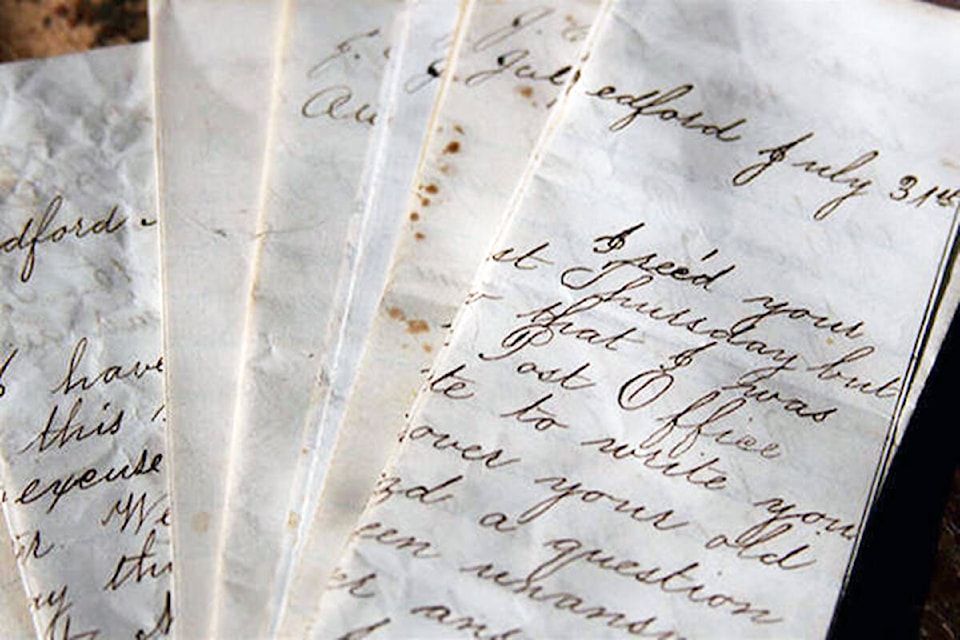 dford
I have
this
excuse
We
thi
Au
Jul
edford July 31st
I rec'd your
st Thursday but
that I was
Post Office
te to write you
over your old
nd a question
een unans